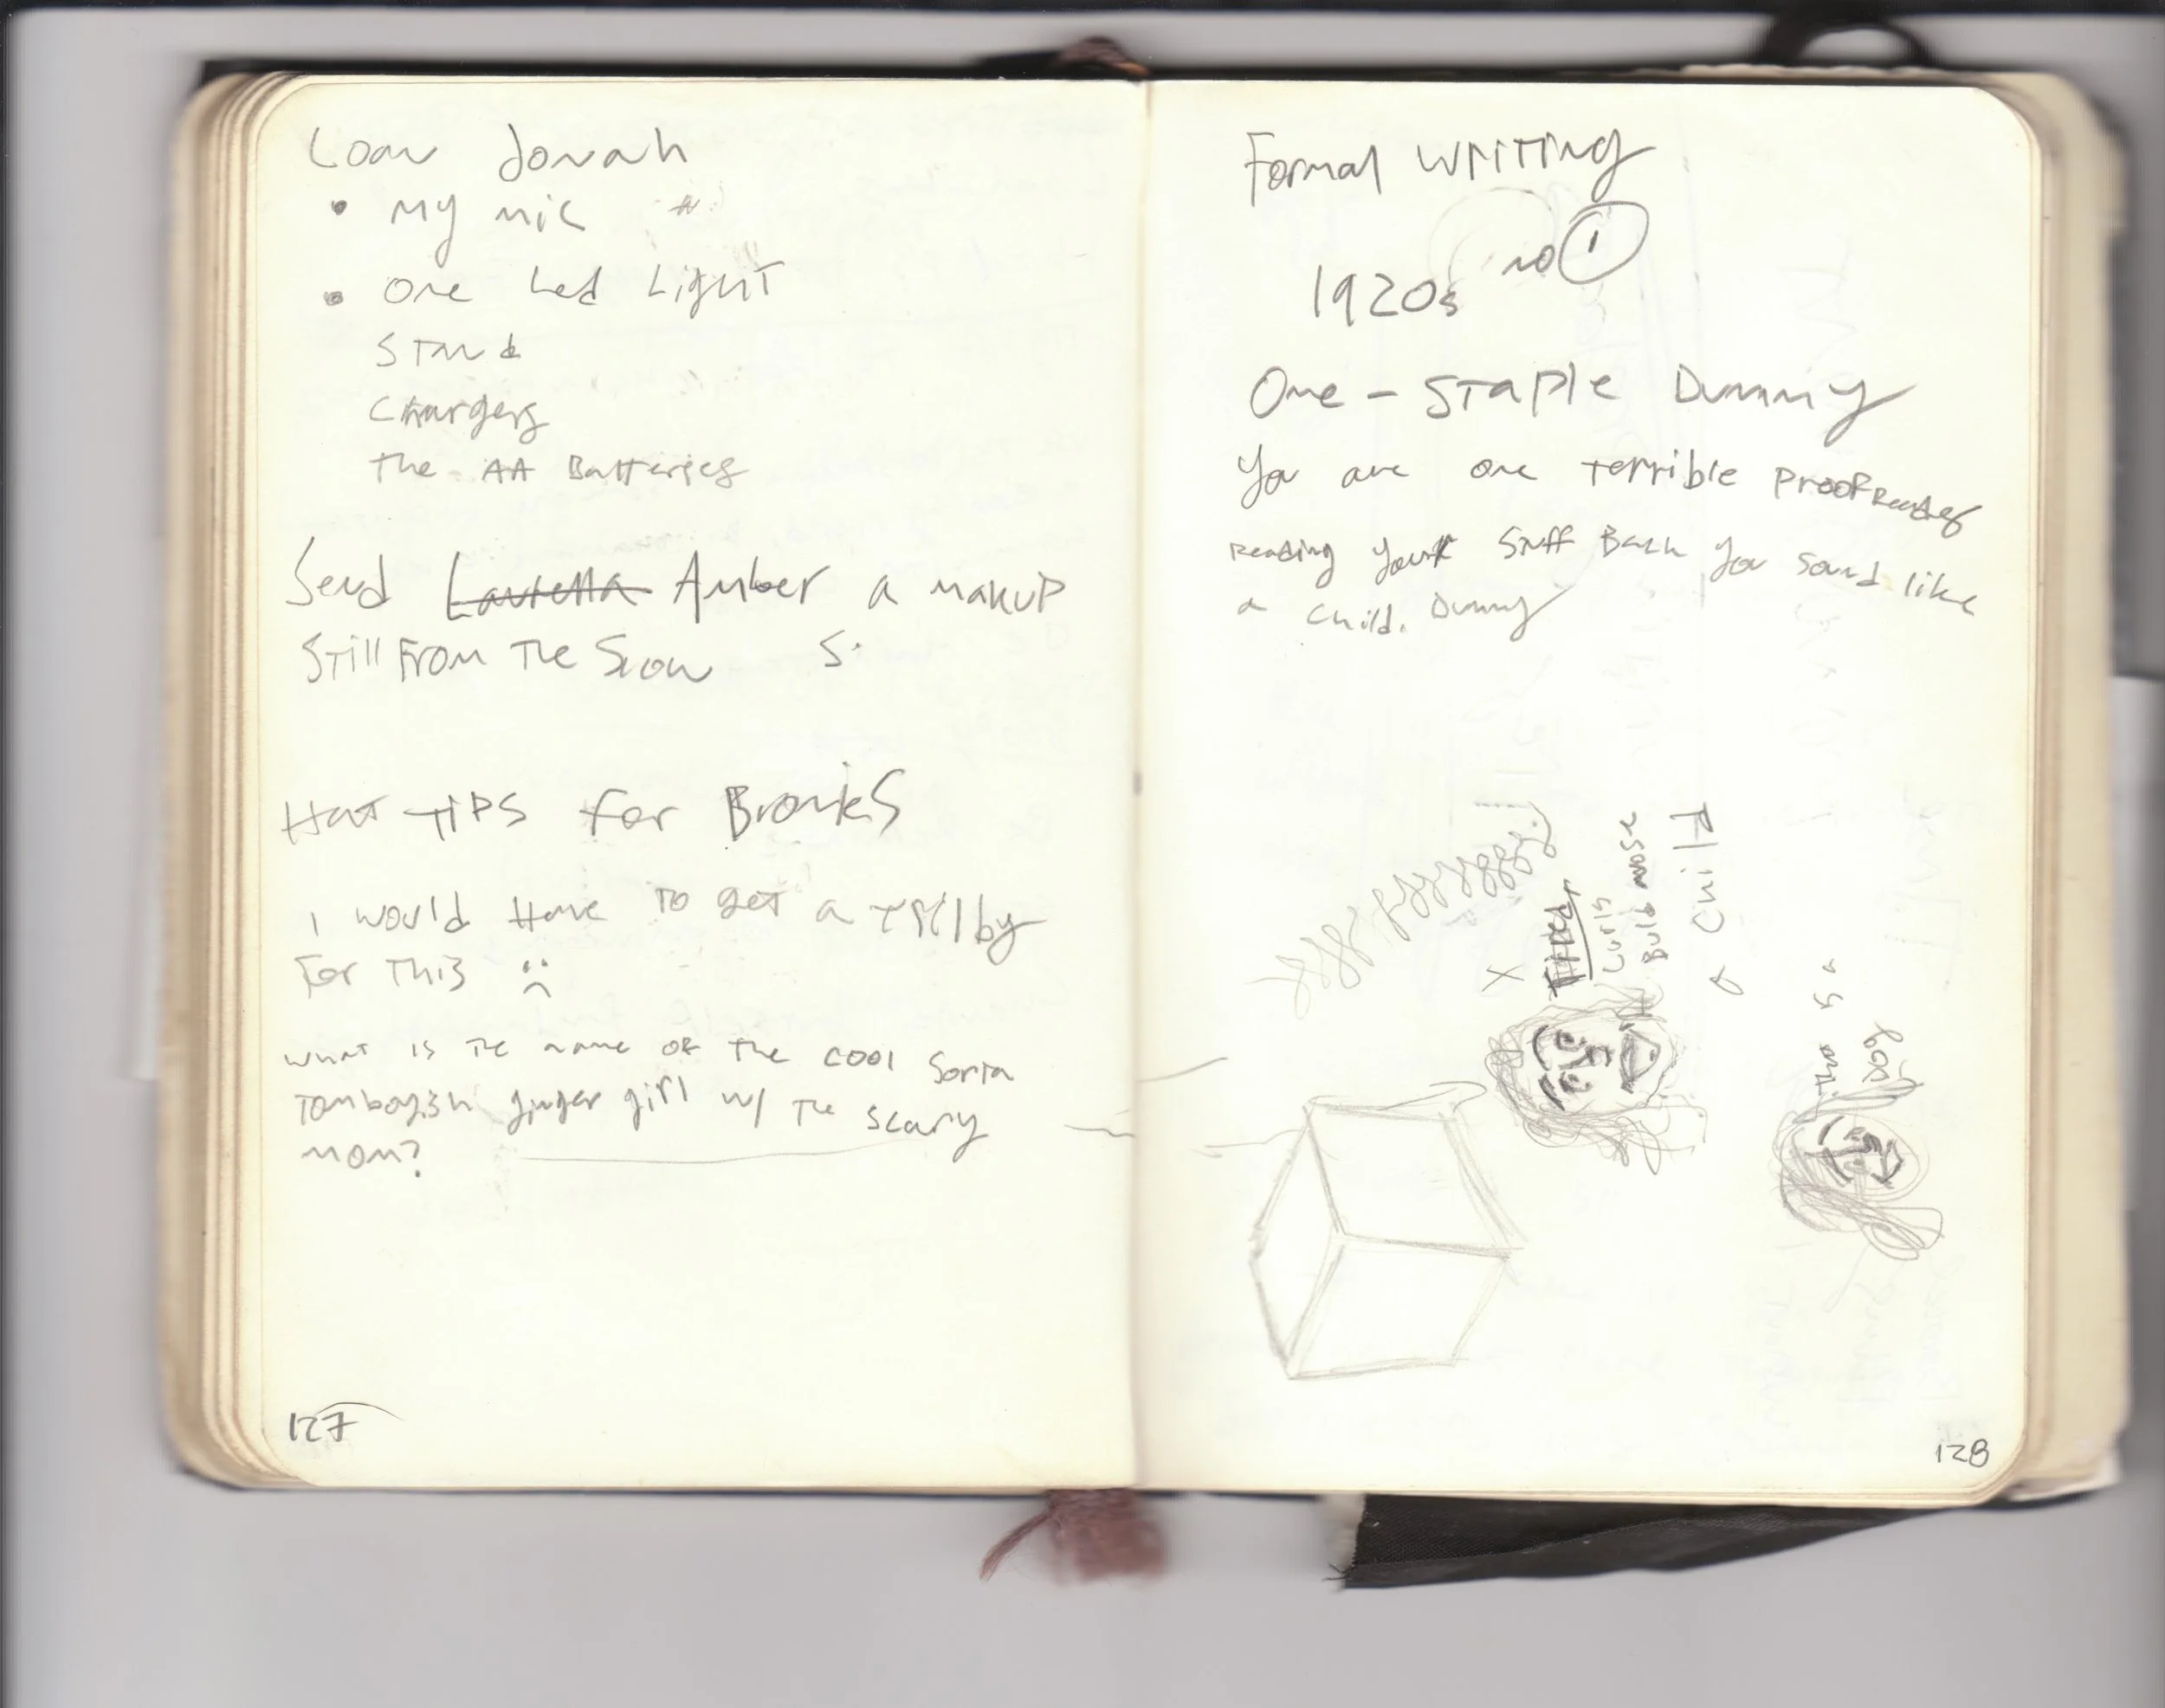 Loan Jonah
• My mic
• One Led Light
Stand
Chargers
The AA Batteries
Send Amber a makup
Still From The Show S.
Hat Tips for Bronies
I would Have to get a Trilby
For This :(
What is the name of the cool Sorta
Tomboyish ginger girl w/ the scary
mom?
127
Formal Writing
1920s no 1
One - Staple Dummy
You are one terrible Proofreader
Reading your Stuff Back you sound like
a child. Dummy
X
Curls
Bulb nose
a Child
This is a
boy
128